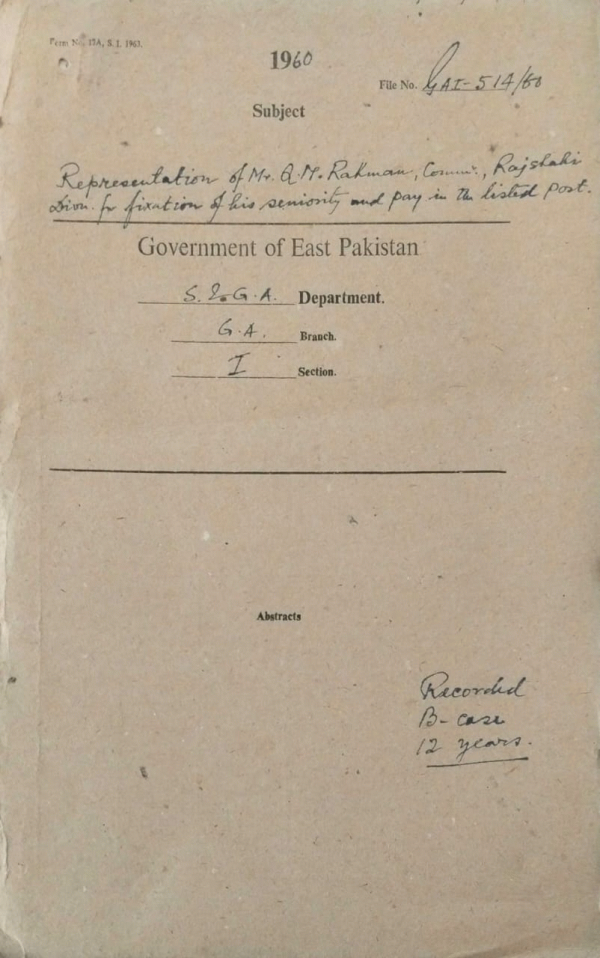 Form No. 17A, S. I. 1963.
1960
File No. GAI-514/60
Subject
Representation of Mr. Q.M. Rahman, Commr., Rajshahi
Divn. for fixation of his seniority and pay in the listed post.
Government of East Pakistan
S. & G. A. Department.
G. A. Branch.
I Section.
Abstracts
Recorded
B- case
12 years.